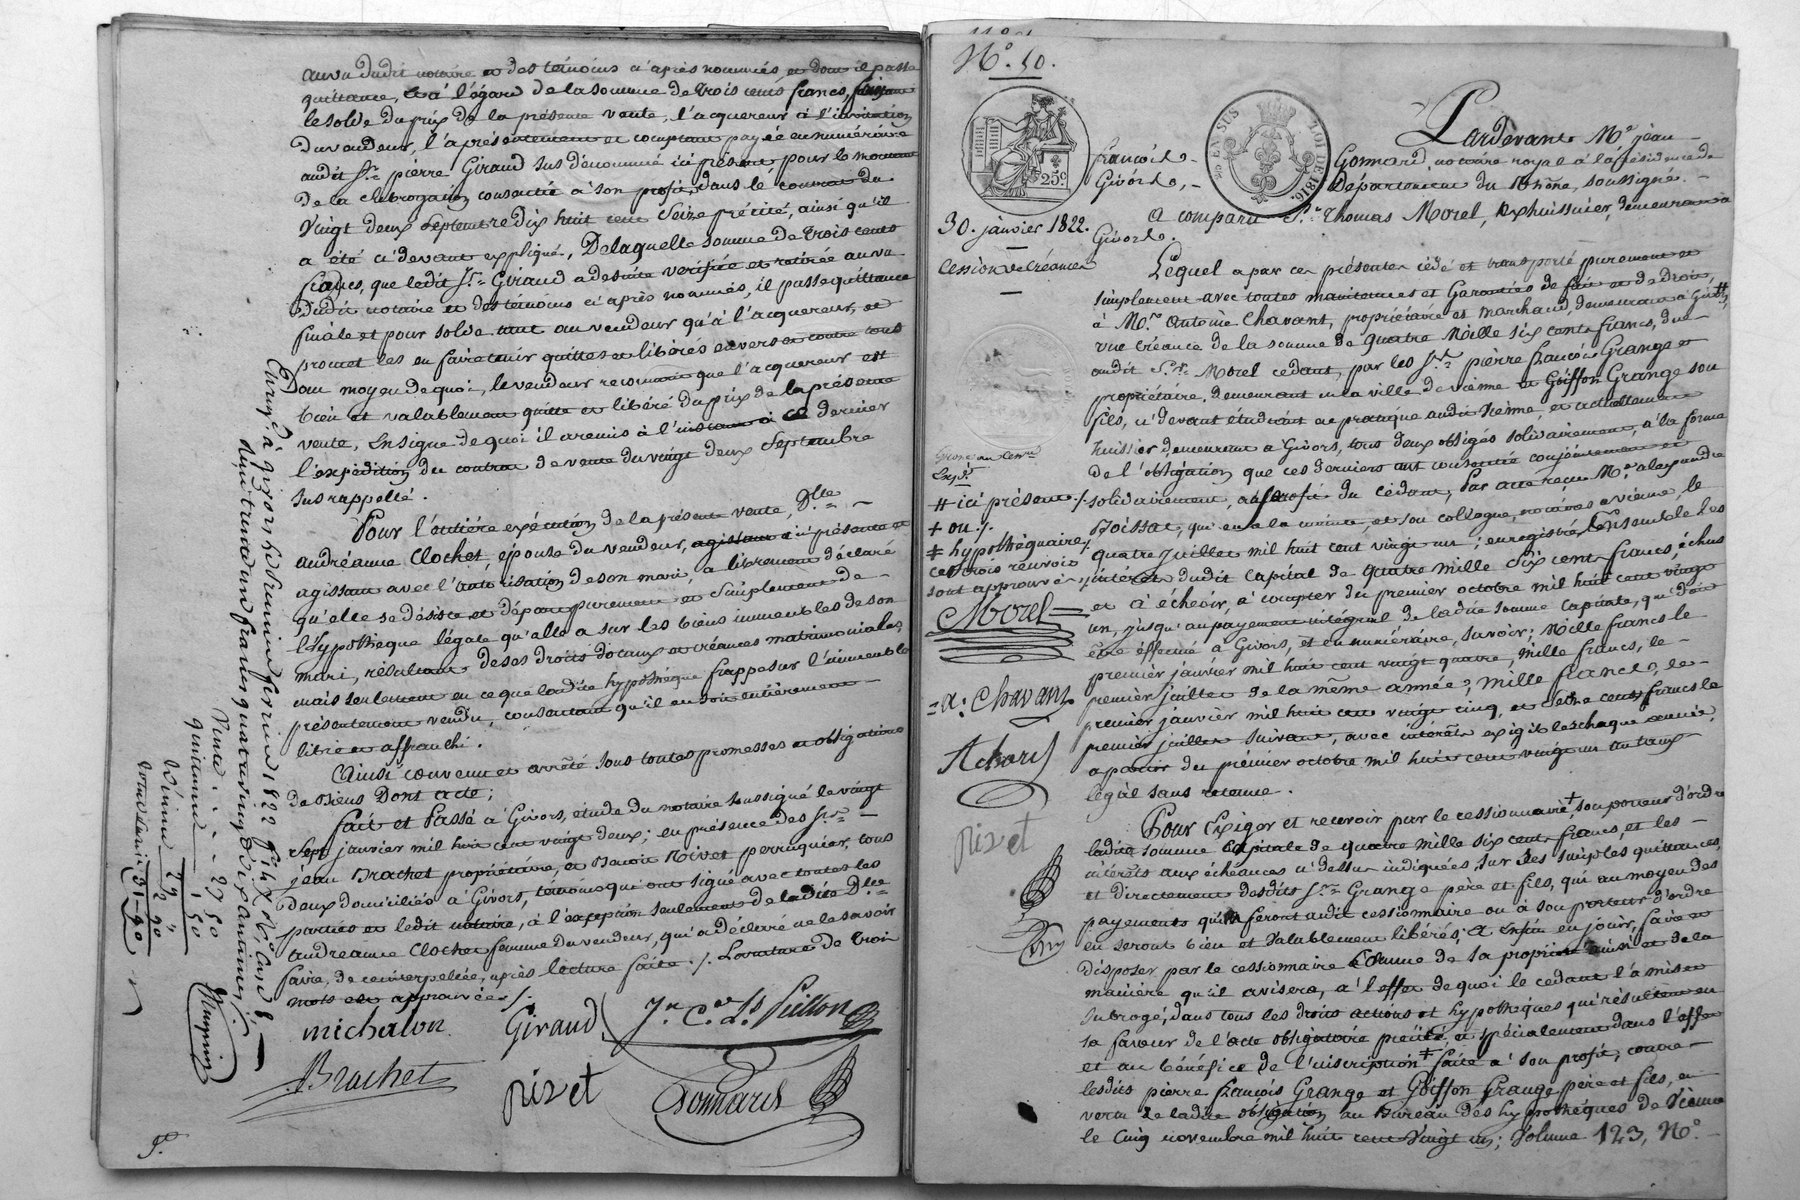 au vu dudit notaire et des témoins ci après nommés et dont il passe
quittance, et à l'égard de la somme de trois cents francs, faisant
le solde du prix de la présente vente, l'acquereur à l'invitation
du vendeur, l'a présentement et comptant payée en numéraire
audit Sr. pierre Giraud sus dénommé ici présent pour le montant
de la consentie à son profit, dans le contrat du
Vingt deux Septembre Dix huit cent Seize précité, ainsi qu'il
a été ci devant expliqué, De laquelle somme de trois cents
francs, que ledit Sr. Giraud a desuite verifiée et retirée au vu
Dudit notaire et des témoins ci après nommés, il passe quittance
finale et pour solde tant au vendeur qu'à l'acquereur, et
promet les en faire tenir quittes et libérés envers et contre tous
Dont moyen de quoi, le vendeur reconnait que l'acquereur est
bien et valablement quitte et libéré du prix de la présente
vente, En signe de quoi il a remis à l'instant à ce dernier
l'expédition du contrat de vente du vingt deux Septembre
sus rappellé.
Pour l'entière exécution de la présente vente, Dlle
andréanne Clochet, épouse du vendeur, agissant ici présente et
agissant avec l'autorisation de son mari, a librement déclaré
qu'elle se désiste et départ purement et Simplement de
l'hypothèque légale qu'elle a sur les biens immeubles de son
mari, résultant de ses droits dotaux et créances matrimoniales,
mais seulement en ce que ladite hypothèque frappe sur l'immeuble
présentement vendu, consentant qu'il en soit entièrement
libre et affranchi.
Ainsi convenu et arrêté sous toutes promesses et obligations
de biens Dont acte;
fait et Passé à Givors, étude du notaire soussigné le vingt
Sept janvier mil huit cent vingt deux; en présence des Srs.
jean Brachet propriétaire, et Benoit Rivet perruquier, tous
deux domiciliés à Givors, témoins qui ont signé avec toutes les
parties et ledit notaire, à l'exception seulement de ladite Dlle
andreanne Clochet femme du vendeur, qui a déclaré ne le savoir
faire, de ce interpellée, après lecture faite ./. La rature de trois
mots est approuvée ./.
michalon Giraud
Brachet rivet Gonnard
Enrégé à givors le février 1822
reçu trente un francs quatre vingt dix centimes
Vente . . . 27 50
Quittance 1 50
29 "
Décime 2 90
31-90
N°. 10.
25c
EN SUS
LOI DE 1816.
françois
Givors
30. janvier 1822.
Cession de Créances
# ici présent ./.
+ ou ./.
‡ hypothéquaire/
ces trois renvois
sont approuvés
Morel
a: Chavant
rivet
Pardevant Me. jean
Gonnard, notaire royal à la résidence de
Département du Rhône, soussigné.
a comparu Sr. Thomas Morel, Exhuissier, demeurant à
Givors.
Lequel a par ces présentes cédé et transporté purement et
simplement avec toutes maintenues et Garanties de fait et de Droit,
à Mr. antoine Chavant, propriétaire et marchand, demeurant à Givors #,
une Créance de la somme de quatre Mille six cents francs, due
audit Sr. Morel cedant, par les Srs. pierre françois Grange et
propriétaire, demeurant en la ville de vienne et Goiffon Grange son
fils, ci devant étudiant en pratique audit Vienne, et actuellement
huissier demeurant à Givors, tous deux obligés solidairement, à la forme
de l'obligation que ces derniers ont consentie conjointement et
solidairement, au profit du cédant, Par acte reçu Me. alexandre
Boissat, qui en a la minute, et son collègue, notaires à vienne, le
quatre juillet mil huit cent vingt un; enregistré, Ensemble les
intérêts dudit Capital de quatre Mille Six cents francs, échus
et à échoir, à compter du premier octobre mil huit cent vingt
un, jusqu'au payement intégral de ladite somme Capitale, qui doit
être effectué à Givors, et en numéraire, savoir; Mille francs le
premier janvier mil huit cent vingt quatre, mille francs, le
premier juillet de la même année; mille francs, le
premier janvier mil huit cent vingt cinq, et seize cents francs le
premier juillet suivant, avec intérêts exigibles chaque année,
a partir du premier octobre mil huit cent vingt un au taux
légal sans retenue.
Pour Exiger et recevoir par le cessionnaire + son porteur d'ordre
ladite somme Capitale de quatre mille six cents francs, et les
intérêts aux échéances ci dessus indiquées, sur ses simples quittances,
et directement desdits Srs. Grange père et fils, qui au moyen des
payements qu'ils feront audit cessionnaire ou à son porteur d'ordre
en seront bien et Valablement libérés; Et Enfin en jouir, faire et
disposer par le cessionnaire Comme de sa propriété ainsi et de la
manière qu'il avisera, à l'effet de quoi le cedant l'a mis et
Subrogé, dans tous les droits actions et hypothèques qui résultent en
sa faveur de l'acte obligatoire précité, et spécialement dans l'effet
et au bénéfice de l'inscription ‡ faite à son profit, contre
lesdits pierre françois Grange et Goiffon Grange père et fils, en
vertu de ladite obligation au Bureau des hypothèques de Vienne
le Cinq novembre mil huit cent Vingt un; Volume 123, N°.